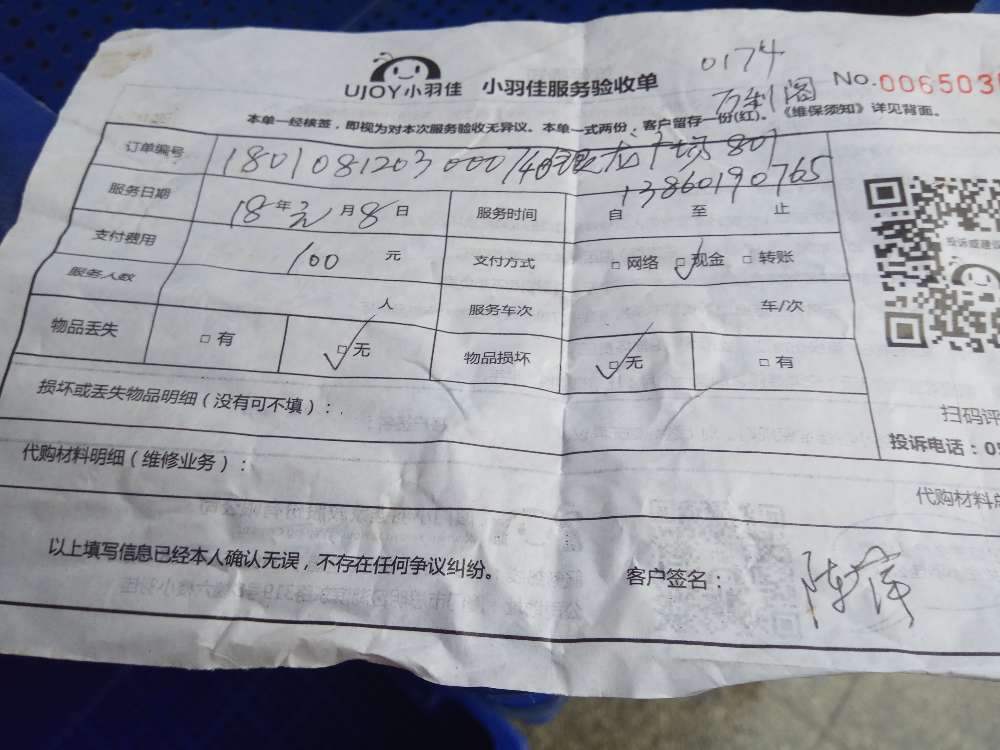 UJOY小羽佳 小羽佳服务验收单 0174 No.006503
本单一经核签，即视为对本次服务验收无异议。本单一式两份，客户留存一份(红)。《维保须知》详见背面。
订单编号 180108120300074 801
13860190765
服务日期 18年元月8日 服务时间 自 至 止
支付费用 100元 支付方式 □网络 □现金 □转账
服务人数 人 服务车次 车/次
物品丢失 □有 □无 物品损坏 □无 □有
损坏或丢失物品明细（没有可不填）：
扫码评
投诉电话：05
代购材料明细（维修业务）：
代购材料总
以上填写信息已经本人确认无误，不存在任何争议纠纷。
客户签名：陈萍